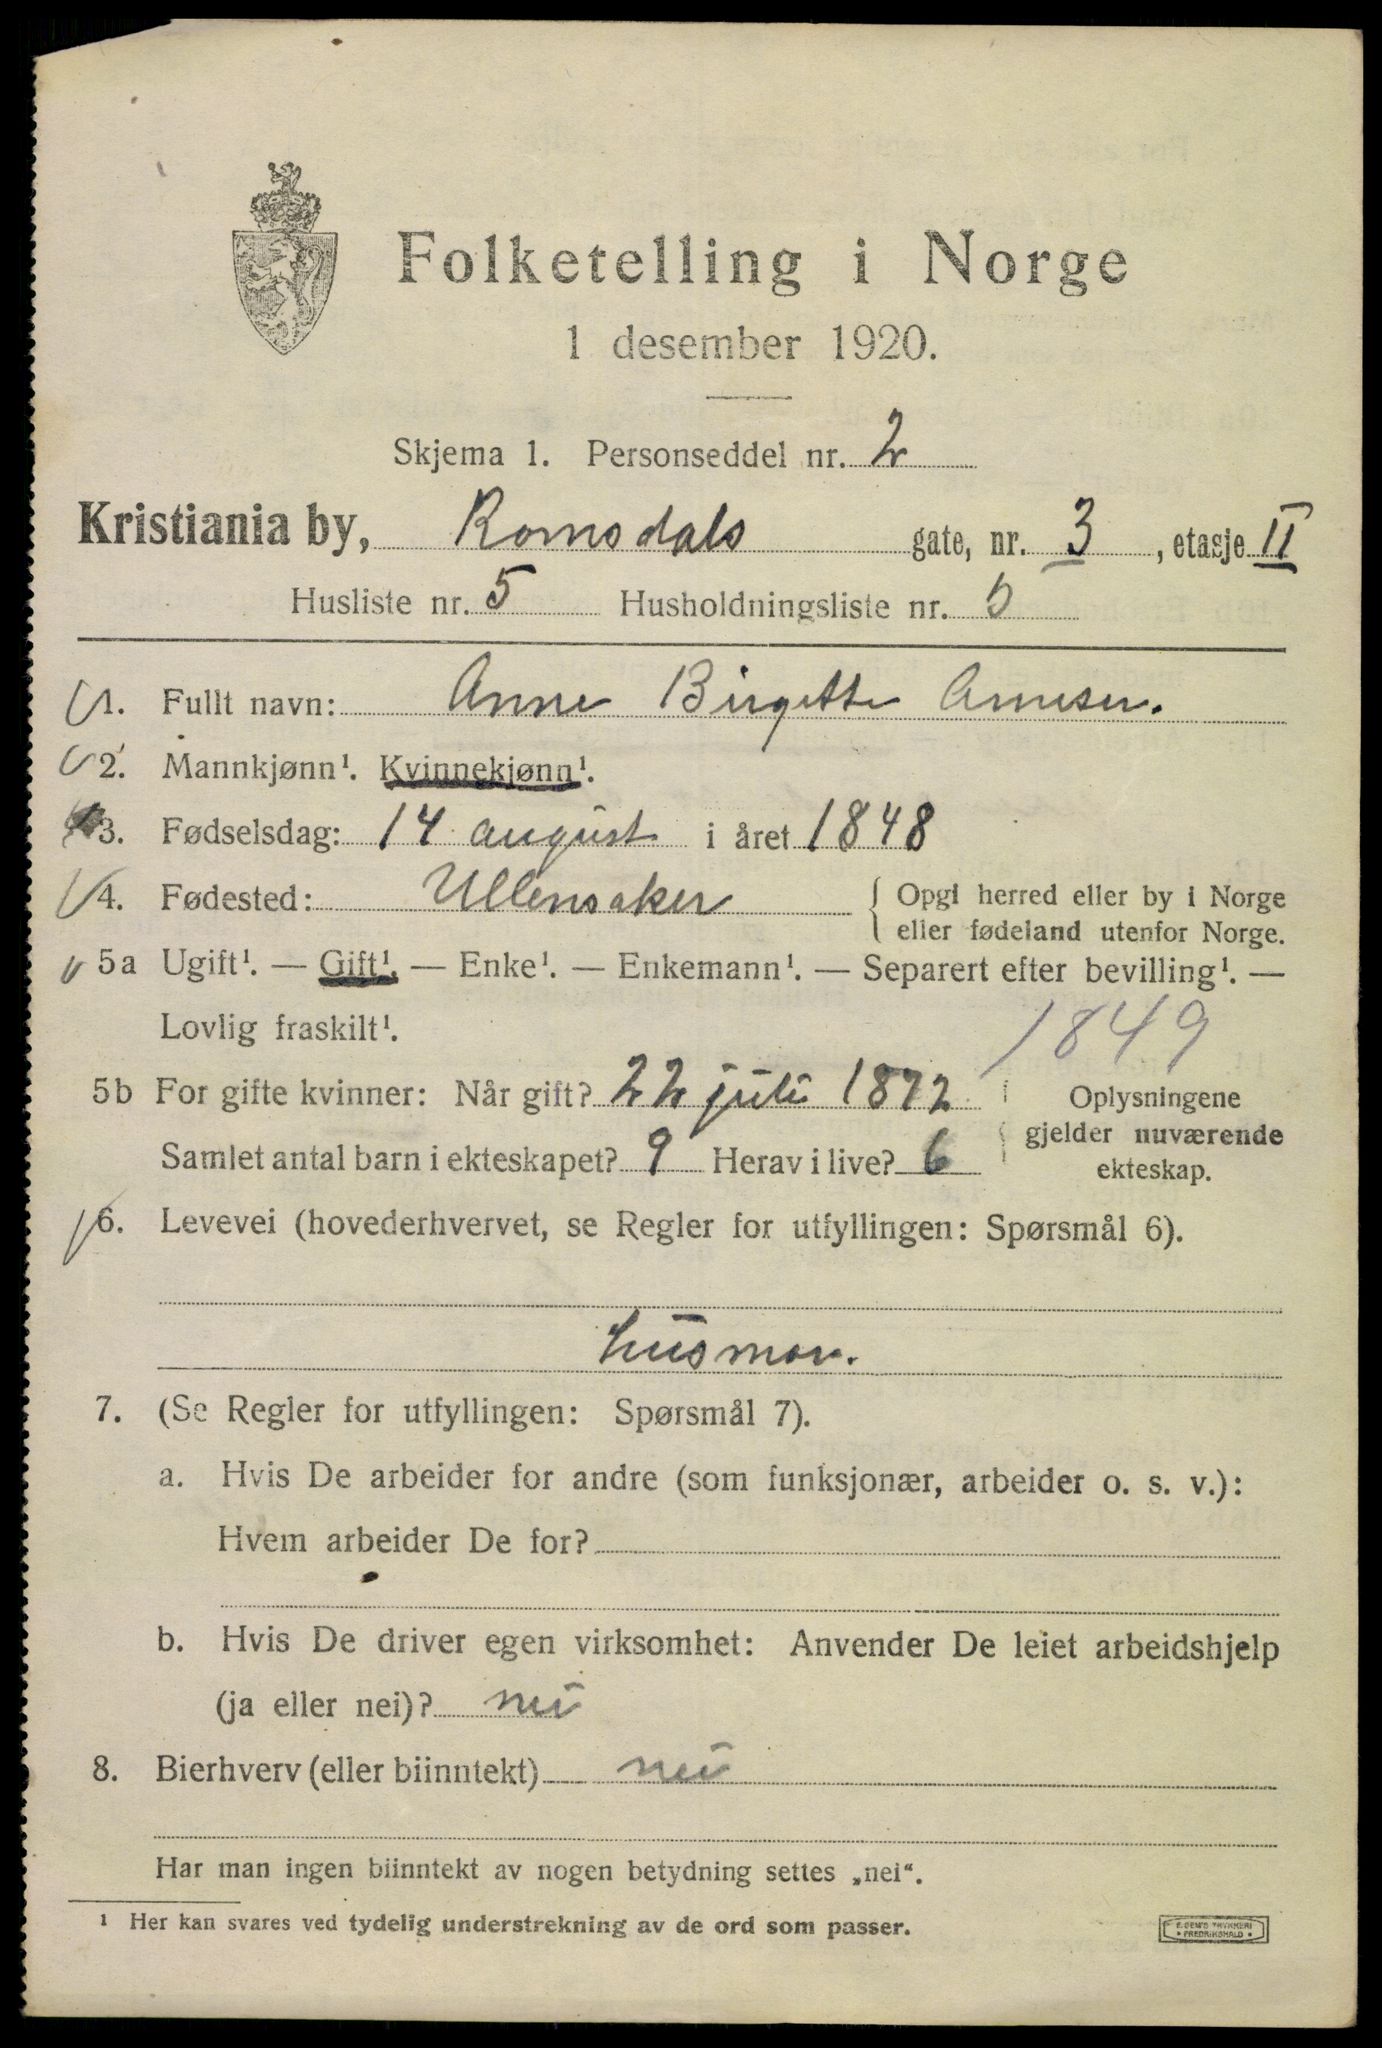 Folketelling i Norge
1 desember 1920.
Skjema 1. Personseddel nr. 2
Kristiania by, Romsdals gate, nr. 3, etasje II
Husliste nr. 5 Husholdningsliste nr. 5
1. Fullt navn: Anne Birgette Arnesen.
2. Mannkjønn¹. Kvinnekjønn¹.
3. Fødselsdag: 14 august i året 1848
4. Fødested: Ullensaker { Opgi herred eller by i Norge
eller fødeland utenfor Norge.
5a Ugift¹. — Gift¹. — Enke¹. — Enkemann¹. — Separert efter bevilling¹. —
Lovlig fraskilt¹. 1849
5b For gifte kvinner: Når gift? 22 juli 1872 Oplysningene
gjelder nuværende
Samlet antal barn i ekteskapet? 9 Herav i live? 6 ekteskap.
6. Levevei (hovederhvervet, se Regler for utfyllingen: Spørsmål 6).
husmor.
7. (Se Regler for utfyllingen: Spørsmål 7).
a. Hvis De arbeider for andre (som funksjonær, arbeider o. s. v.):
Hvem arbeider De for?
b. Hvis De driver egen virksomhet: Anvender De leiet arbeidshjelp
(ja eller nei)? nei
8. Bierhverv (eller biinntekt) nei
Har man ingen biinntekt av nogen betydning settes „nei“.
¹ Her kan svares ved tydelig understrekning av de ord som passer.
E. SEM'S TRYKKERI
• FREDRIKSHALD •